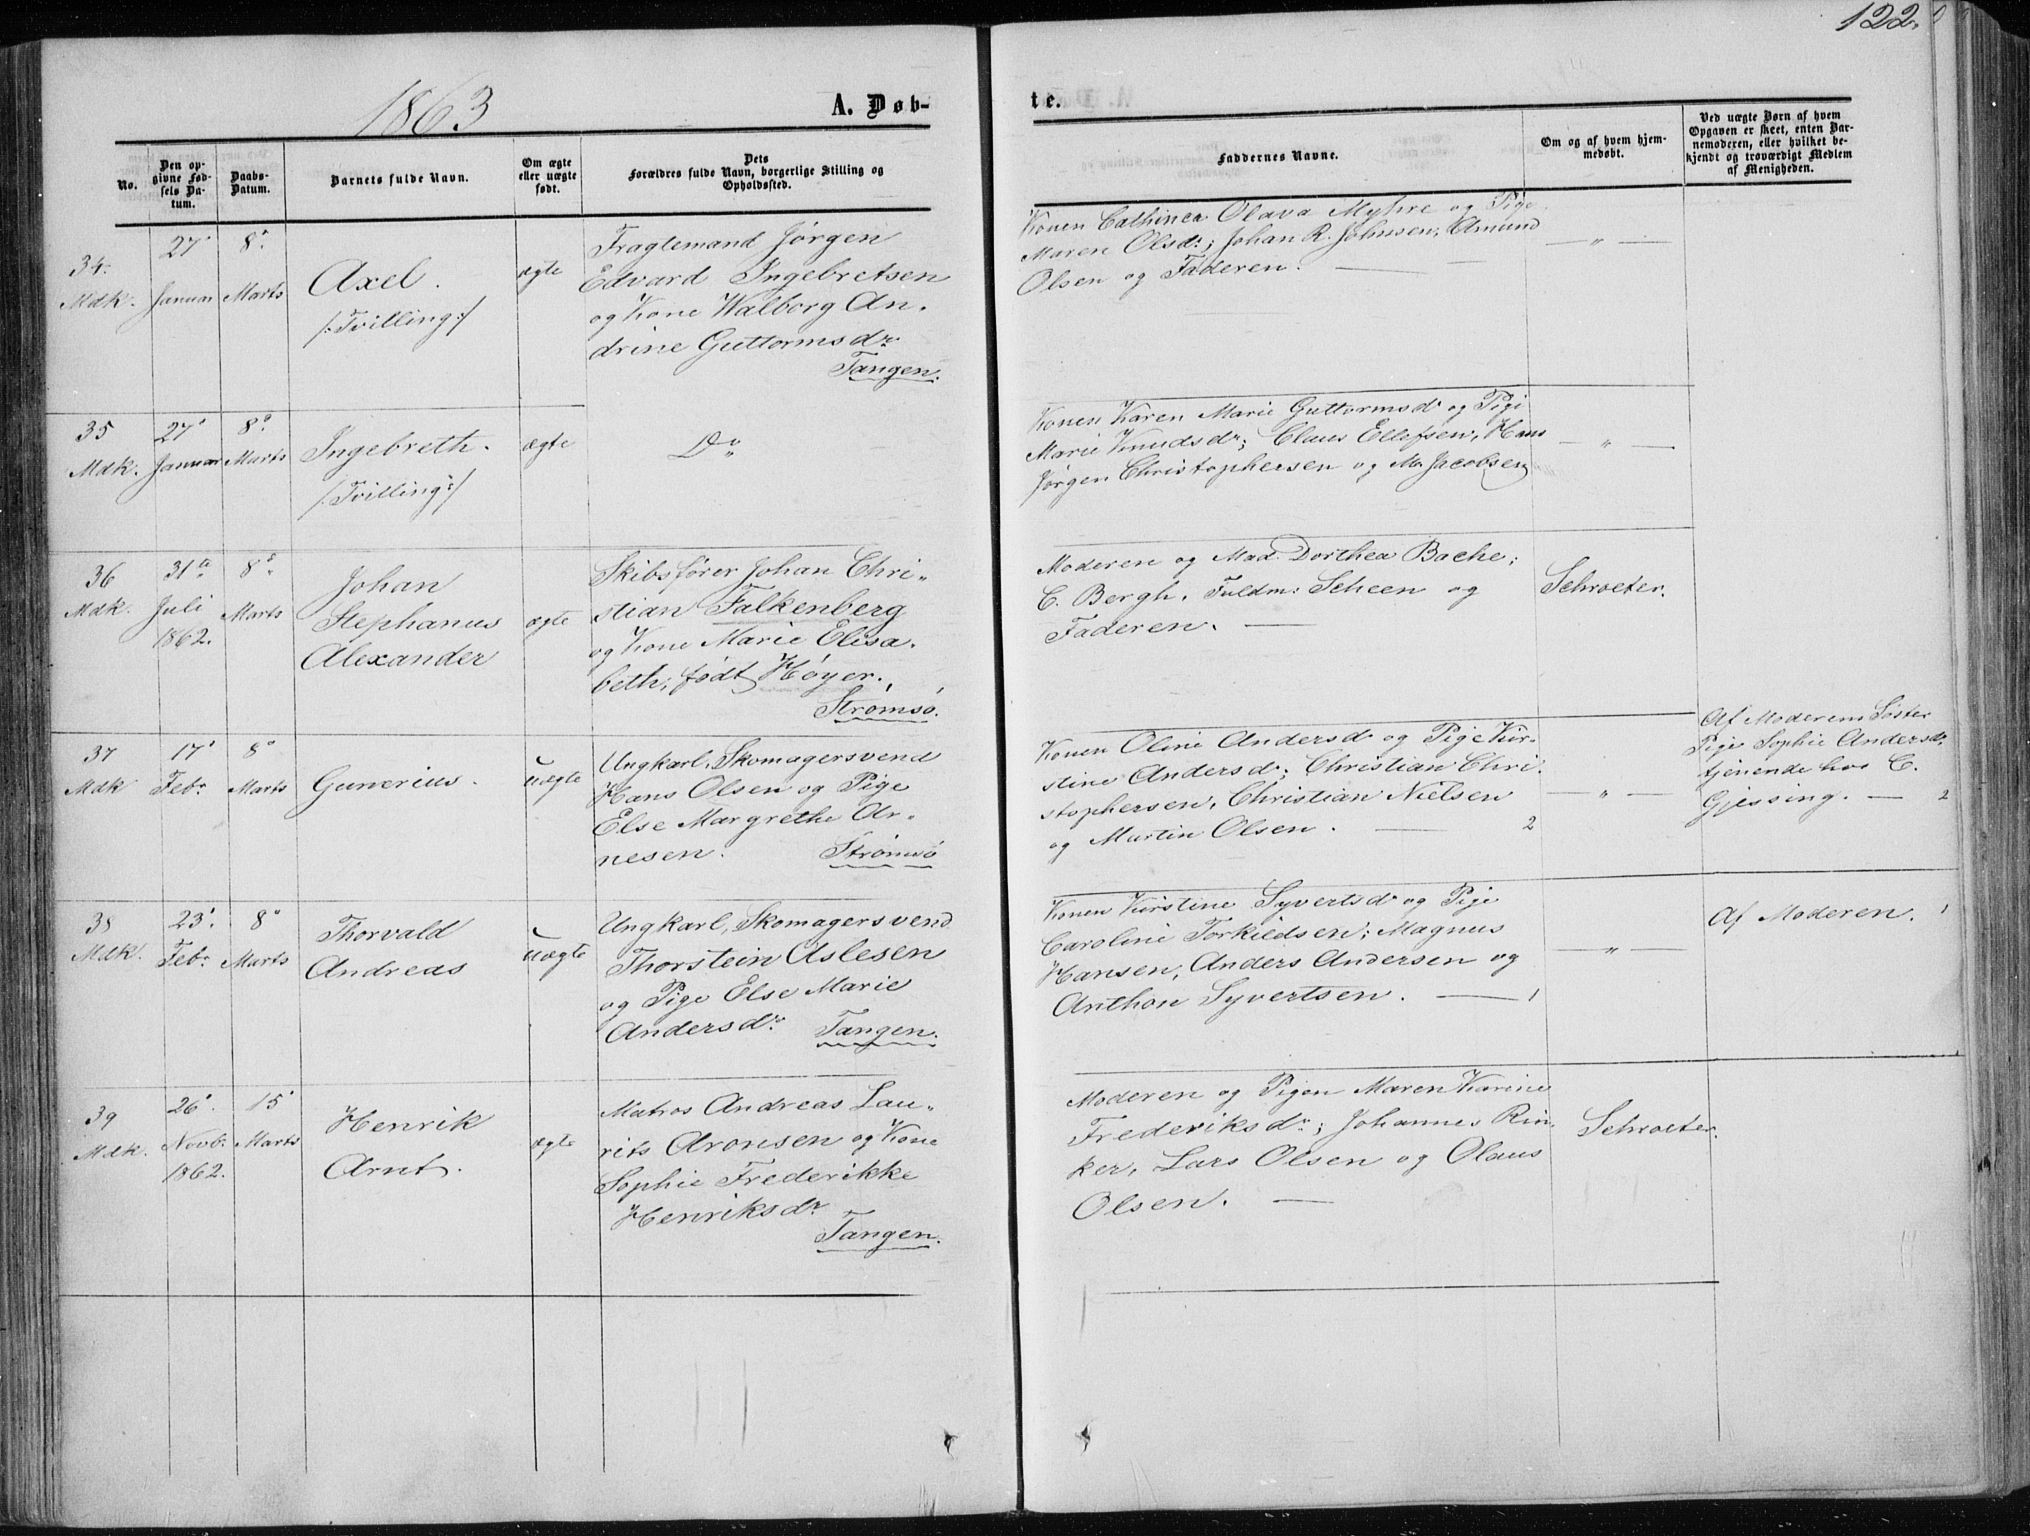 122.
1863
A. Døb-
te.
No.
Den op-
givne Fød-
sels Da-
tum.
Daabs-
Datum.
Barnets fulde Navn.
Om ægte
eller uægte
født.
Dets
Forældres fulde Navn, borgerlige Stilling og
Opholdssted.
Faddernes Navne.
Om og af hvem hjem-
medøbt.
Ved uægte Børn af hvem
Opgaven er skeet, enten Bar-
nemoderen, eller hvilket be-
kjendt og troværdigt Medlem
af Menigheden.
34.
Mdk.
27
Januar
8
Marts
Axel.
/:Tvilling:/
ægte
Fragtemand Jørgen
Edvard Ingebretsen
og Kone Walborg An,
drine Guttormsdr
Tangen.
Konen Cathinca Olava Myhre og Pige
Maren Olsdr; Johan R. Johnsen, Amund
Olsen og Faderen. —
— " —
35
Mdk.
27
Januar
8
Marts
Ingebreth.
/:Tvilling:/
ægte
Do
Konen Karen Marie Guttormsd og Pige
Marie Knudsdr; Claus Ellefsen, Hans
Jørgen Christophersen og M. Jacobsen
— " —
36
Mdk.
31
Juli
1862.
8
Marts
Johan
Stephanus
Alexander
ægte
Skibsfører Johan Chri,
stian Falkenberg
og Kone Marie Elisa,
beth, født Høyer.
Strømsø.
Moderen og Mad. Dorthea Bache;
C. Bergh, Fuldm: Scheen og
Faderen. —
Schroeter.
37
Mdk
17
Febr
8
Marts
Gunerius.
uægte
Ungkarl, Skomagersvend
Hans Olsen og Pige
Else Margrethe Ar,
nesen.
Strømsø
Konen Oline Andersd og Pige Kir,
stine Andersd; Christian Chri,
stophersen, Christian Nielsen
og Martin Olsen. — 2
— " —
Af Moderens Søster
Pige Sophie Andersdr,
tjenende hos C.
Gjessing. — 2
38
Mdk.
23
Febr
8
Marts
Thorvald
Andreas
uægte
Ungkarl, Skomagersvend
Thorstein Aslesen
og Pige Else Marie
Andersdr
Tangen.
Konen Kirstine Syvertsd og Pige
Caroline Torkildsen; Magnus
Hansen, Anders Andersen og
Anthon Syvertsen. — 1
— " —
Af Moderen. 1
39
Mdk.
26
Novb.
1862.
15
Marts
Henrik
Arnt.
ægte
Matros Andreas Lau,
rits Aronsen og Kone
Sophie Frederikke
Henriksdr
Tangen.
Moderen og Pigen Maren Karine
Frederiksdr; Johannes Rin,
ker, Lars Olsen og Olaus
Olsen. —
Schroeter.